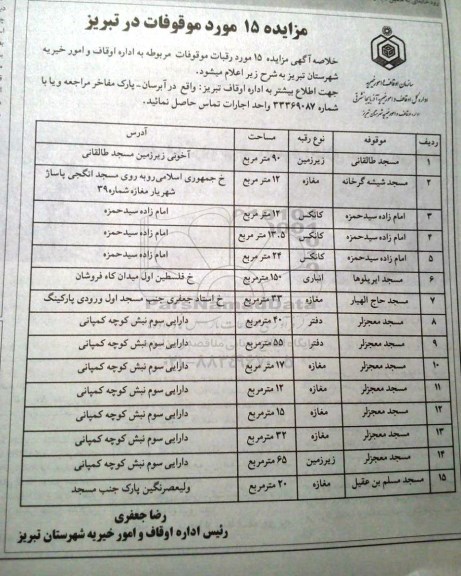 مزایده ۱۵ مورد موقوفات در تبریز
سازمان اوقاف و امور خیریه
اداره کل اوقاف و امور خیریه آذربایجان شرقی
اداره اوقاف و امور خیریه شهرستان تبریز
خلاصه آگهی مزایده ۱۵ مورد رقبات موقوفات مربوطه به اداره اوقاف و امور خیریه
شهرستان تبریز به شرح زیر اعلام میشود.
جهت اطلاع بیشتر به اداره اوقاف تبریز: واقع در آبرسان-پارک مفاخر مراجعه و یا با
شماره ۳۳۳۶۹۰۸۷ واحد اجارات تماس حاصل نمائید.
ردیف موقوفه نوع رقبه مساحت آدرس
۱ مسجد طالقانی زیرزمین ۹۰ متر مربع آخونی زیرزمین مسجد طالقانی
۲ مسجد شیشه گرخانه مغازه ۱۲ متر مربع خ جمهوری اسلامی روبه روی مسجد انگجی پاساژ
شهریار مغازه شماره ۳۹
۳ امام زاده سیدحمزه کانکس ۱۲ متر مربع امام زاده سیدحمزه
۴ امام زاده سیدحمزه کانکس ۱۳.۵ متر مربع امام زاده سیدحمزه
۵ امام زاده سیدحمزه کانکس ۲۴ متر مربع امام زاده سیدحمزه
۶ مسجد ایریلوها انباری ۱۵۰ مترمربع خ فلسطین اول میدان کاه فروشان
۷ مسجد حاج الهیار مغازه ۳۳ مترمربع خ استاد جعفری جنب مسجد اول ورودی پارکینگ
۸ مسجد معجزلر دفتر ۴۰ مترمربع دارایی سوم نبش کوچه کمپانی
۹ مسجد معجزلر دفتر ۵۵ مترمربع دارایی سوم نبش کوچه کمپانی
۱۰ مسجد معجزلر مغازه ۱۷ مترمربع دارایی سوم نبش کوچه کمپانی
۱۱ مسجد معجزلر مغازه ۱۲ مترمربع دارایی سوم نبش کوچه کمپانی
۱۲ مسجد معجزلر مغازه ۱۵ مترمربع دارایی سوم نبش کوچه کمپانی
۱۳ مسجد معجزلر مغازه ۳۲ مترمربع دارایی سوم نبش کوچه کمپانی
۱۴ مسجد معجزلر زیرزمین ۶۵ مترمربع دارایی سوم نبش کوچه کمپانی
۱۵ مسجد مسلم بن عقیل مغازه ۲۰ مترمربع ولیعصرنگین پارک جنب مسجد
رضا جعفری
رئیس اداره اوقاف و امور خیریه شهرستان تبریز